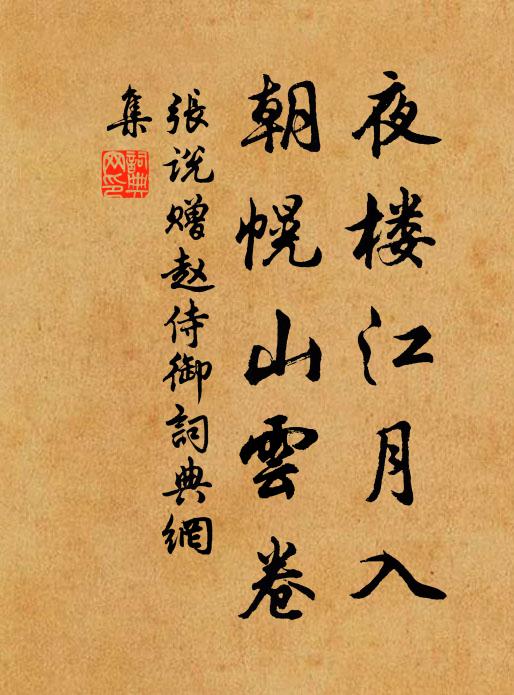 夜楼江月入
朝幌山雲卷
張说赠赵侍御詞典網
集
詞典
网印